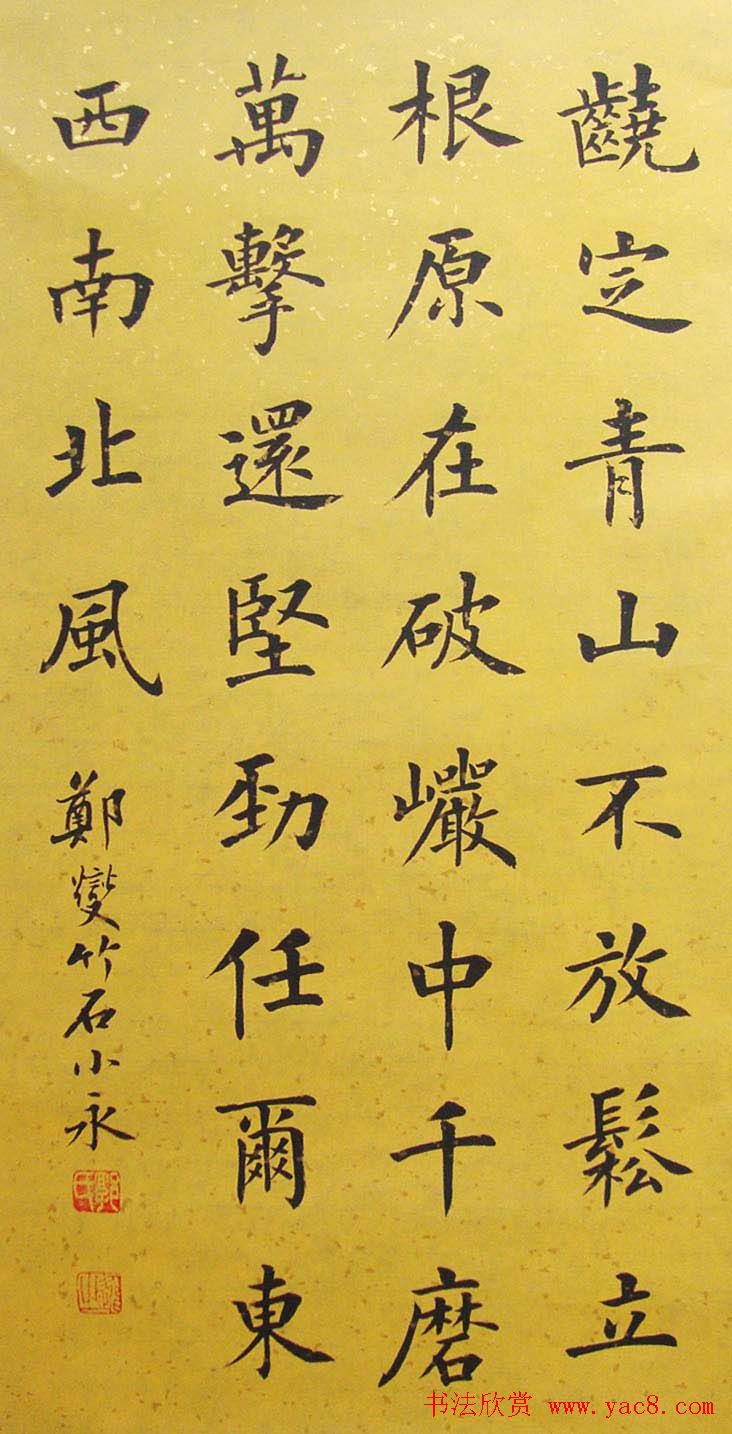 齩定青山不放鬆立
根原在破巖中千磨
萬擊還堅勁任爾東
西南北風
鄭燮竹石小永
书法欣赏 www.yac8.com